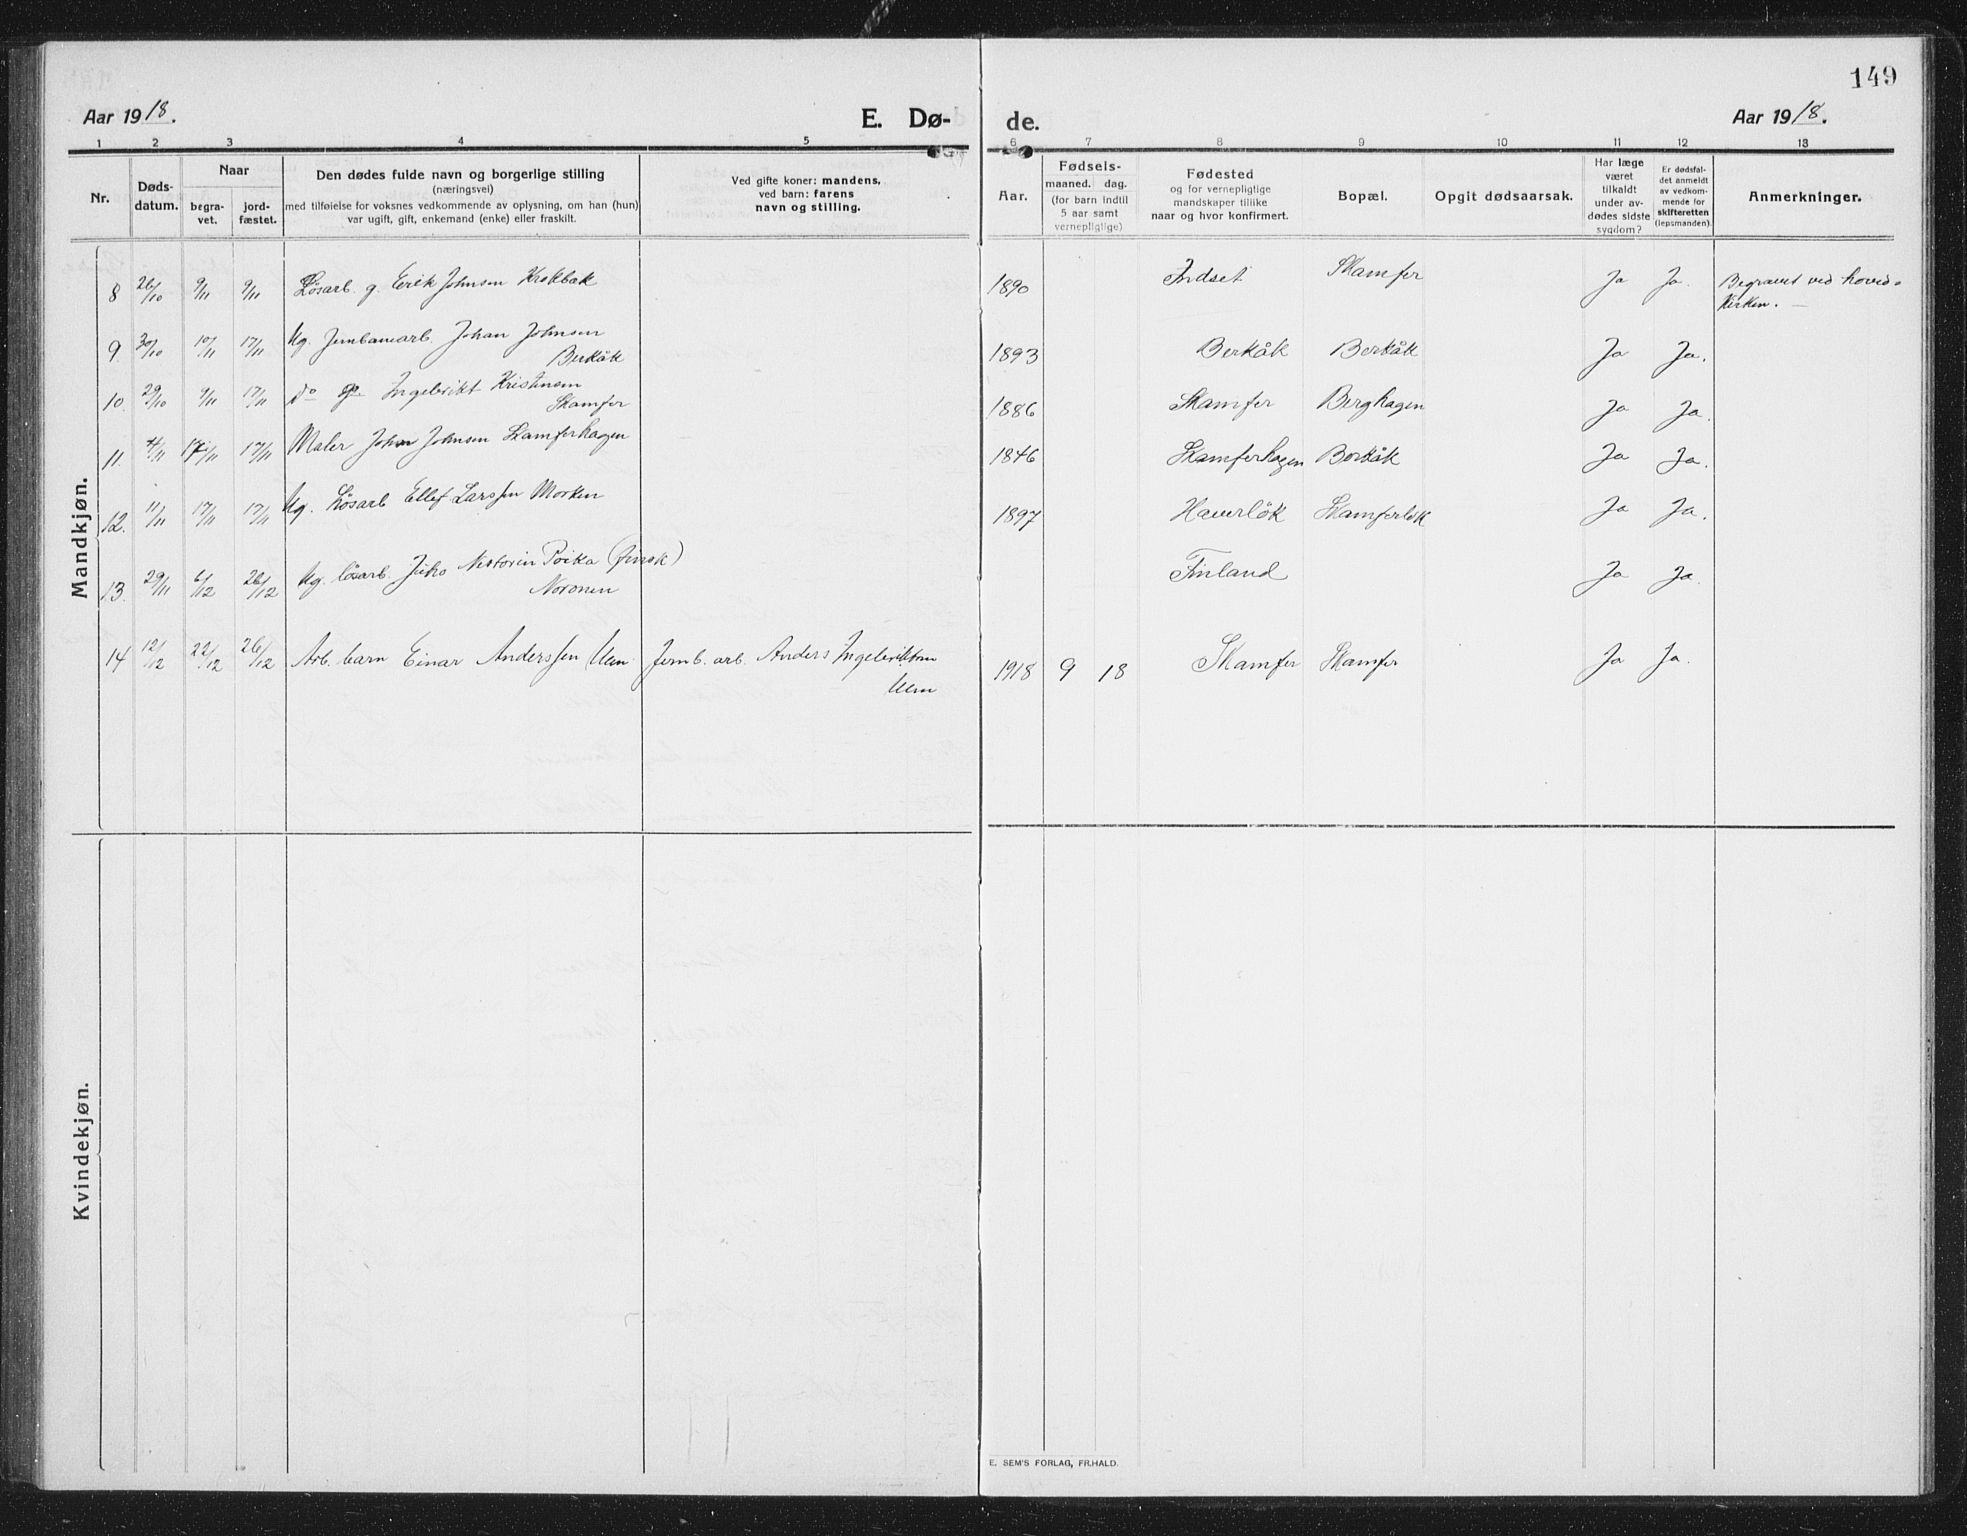 149
Aar 1918. E. Dø- de. Aar 1918.
1 2 3 4 5 6 7 8 9 10 11 12 13
Nr.
Døds-
datum.
Naar
begra-
vet.
jord-
fæstet.
Den dødes fulde navn og borgerlige stilling
(næringsvei)
med tilføielse for voksnes vedkommende av oplysning, om han (hun)
var ugift, gift, enkemand (enke) eller fraskilt.
Ved gifte koner: mandens,
ved barn: farens
navn og stilling.
Aar.
Fødsels-
maaned. dag.
(for barn indtil
5 aar samt
vernepligtige)
Fødested
og for vernepligtige
mandskaper tillike
naar og hvor konfirmert.
Bopæl.
Opgit dødsaarsak.
Har læge
været
tilkaldt
under av-
dødes sidste
sygdom?
Er dødsfal-
det anmeldt
av vedkom-
mende for
skifteretten
(lepsmanden).
Anmerkninger.
Mandkjøn.
8 26/10 9/11 9/11 Løsarb. g. Erik Johnsen Krokbæk 1890 Indset Skamfer Ja Ja. Begravet ved hoved-
kirken. —
9. 30/10 10/11 17/11 Ug. Jernbanearb. Johan Johnsen 1893 Berkåk Berkåk Ja Ja.
Berkåk
10. 29/10 9/11 17/11 do g. Ingebrikt Kristensen 1886 Skamfer Berghagen Ja Ja.
Skamfer
11. 4/11 17/11 Maler John Johnsen Skamferhagen 1846 Skamferhagen Berkåk Ja Ja.
12. 11/11 17/11 17/11 Ug. Løsarb Ellef Larssen Morken 1897 Haverløk Skamferløk Ja Ja.
13. 29/11 6/12 26/12 Ug. løsarb. Juho Nestorin Poika (finsk) Finland Ja Ja.
Noronen
14 12/12 22/12 26/12 Arb. barn Einar Anderssen Uem Jernb. arb. Anders Ingebriktsen 1918 9 18 Skamfer Skamfer Ja Ja.
Uem
Kvindekjøn.
E. SEM'S FORLAG, FR.HALD.